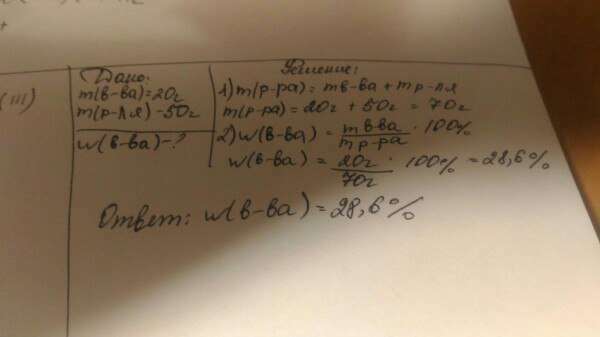 (III)
Дано:
m(в-ва)=20г
m(р-ля)-50г
w(в-ва)-?
Решение:
1) m(р-ра) = mв-ва + mр-ля
m(р-ра) = 20г + 50г = 70г
2) w(в-ва) = mв-ва / mр-ра · 100%
w(в-ва) = 20г / 70г · 100% = 28,6%
Ответ: w(в-ва) = 28,6%